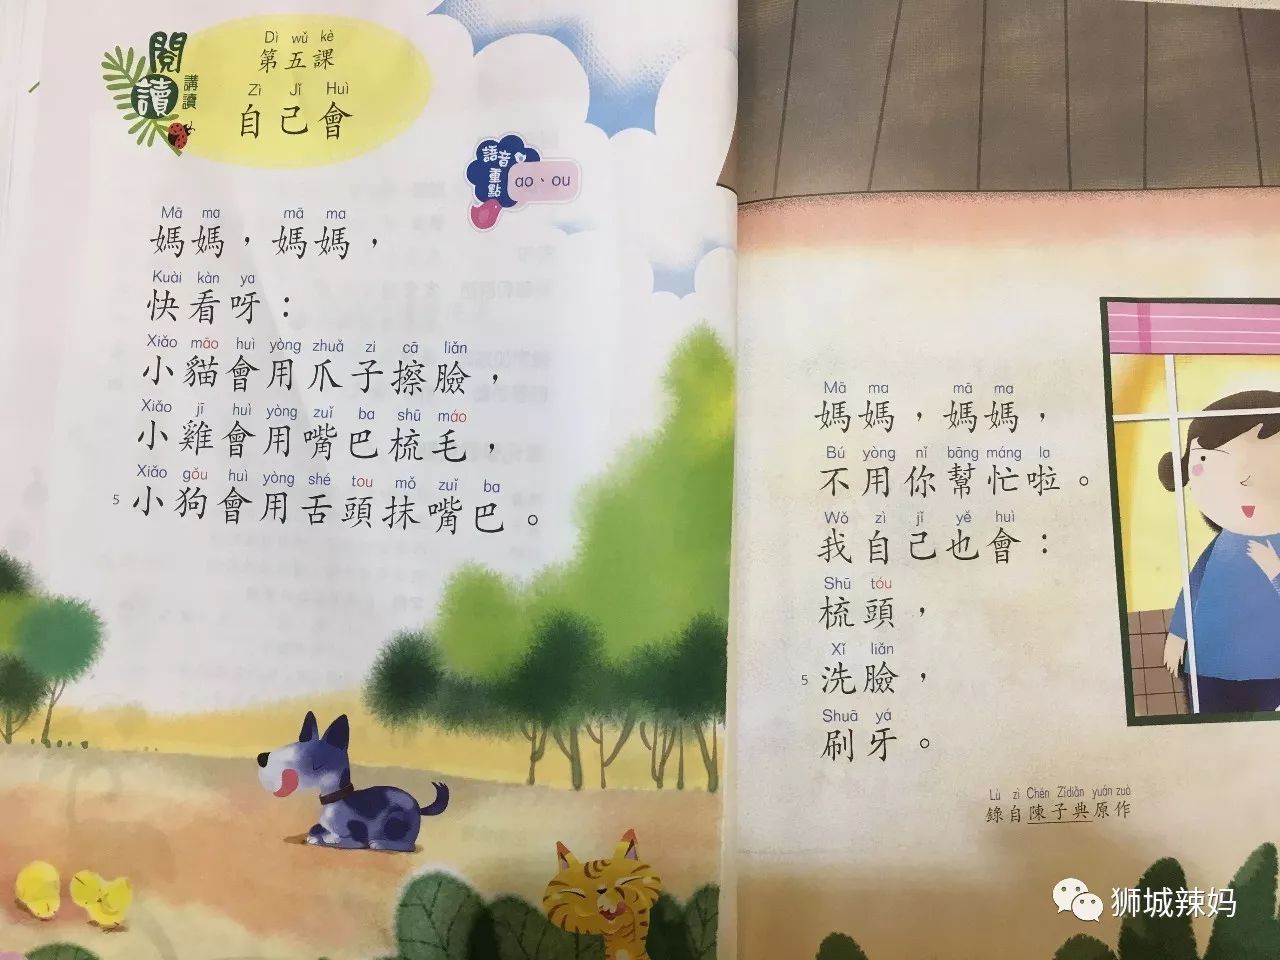 閱讀
講讀
Dì wǔ kè
第五課
Zì Jǐ Huì
自己會
語音重點
ao、ou
Mā ma mā ma
媽媽，媽媽，
Kuài kàn ya
快看呀：
Xiǎo māo huì yòng zhuǎ zi cā liǎn
小貓會用爪子擦臉，
Xiǎo jī huì yòng zuǐ ba shū máo
小雞會用嘴巴梳毛，
Xiǎo gǒu huì yòng shé tou mǒ zuǐ ba
5 小狗會用舌頭抹嘴巴。
Mā ma mā ma
媽媽，媽媽，
Bú yòng nǐ bāng máng la
不用你幫忙啦。
Wǒ zì jǐ yě huì
我自己也會：
Shū tóu
梳頭，
Xǐ liǎn
5 洗臉，
Shuā yá
刷牙。
Lù zì Chén Zǐdiǎn yuán zuò
錄自陳子典原作
狮城辣妈